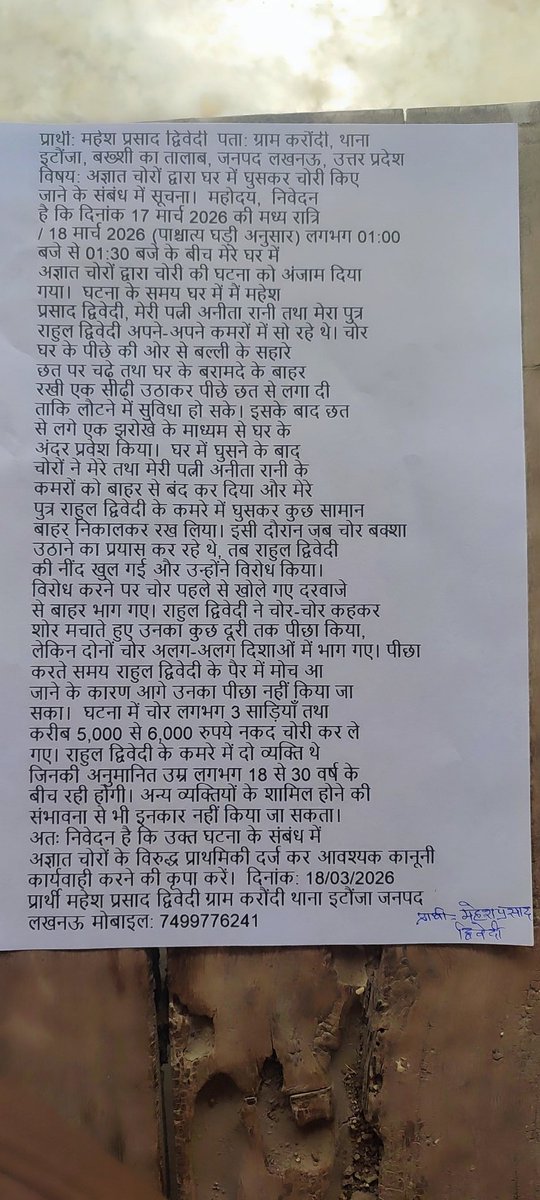 प्रार्थी: महेश प्रसाद द्विवेदी  पता: ग्राम करौंदी, थाना
इटौंजा, बख्शी का तालाब, जनपद लखनऊ, उत्तर प्रदेश
विषय: अज्ञात चोरों द्वारा घर में घुसकर चोरी किए
जाने के संबंध में सूचना।  महोदय,  निवेदन
है कि दिनांक 17 मार्च 2026 की मध्य रात्रि
/ 18 मार्च 2026 (पाश्चात्य घड़ी अनुसार) लगभग 01:00
बजे से 01:30 बजे के बीच मेरे घर में
अज्ञात चोरों द्वारा चोरी की घटना को अंजाम दिया
गया।  घटना के समय घर में मैं महेश
प्रसाद द्विवेदी, मेरी पत्नी अनीता रानी तथा मेरा पुत्र
राहुल द्विवेदी अपने-अपने कमरों में सो रहे थे। चोर
घर के पीछे की ओर से बल्ली के सहारे
छत पर चढ़े तथा घर के बरामदे के बाहर
रखी एक सीढ़ी उठाकर पीछे छत से लगा दी
ताकि लौटने में सुविधा हो सके। इसके बाद छत
से लगे एक झरोखे के माध्यम से घर के
अंदर प्रवेश किया।  घर में घुसने के बाद
चोरों ने मेरे तथा मेरी पत्नी अनीता रानी के
कमरों को बाहर से बंद कर दिया और मेरे
पुत्र राहुल द्विवेदी के कमरे में घुसकर कुछ सामान
बाहर निकालकर रख लिया। इसी दौरान जब चोर बक्शा
उठाने का प्रयास कर रहे थे, तब राहुल द्विवेदी
की नींद खुल गई और उन्होंने विरोध किया।
विरोध करने पर चोर पहले से खोले गए दरवाजे
से बाहर भाग गए। राहुल द्विवेदी ने चोर-चोर कहकर
शोर मचाते हुए उनका कुछ दूरी तक पीछा किया,
लेकिन दोनों चोर अलग-अलग दिशाओं में भाग गए। पीछा
करते समय राहुल द्विवेदी के पैर में मोच आ
जाने के कारण आगे उनका पीछा नहीं किया जा
सका।  घटना में चोर लगभग 3 साड़ियाँ तथा
करीब 5,000 से 6,000 रुपये नकद चोरी कर ले
गए। राहुल द्विवेदी के कमरे में दो व्यक्ति थे
जिनकी अनुमानित उम्र लगभग 18 से 30 वर्ष के
बीच रही होगी। अन्य व्यक्तियों के शामिल होने की
संभावना से भी इनकार नहीं किया जा सकता।
अतः निवेदन है कि उक्त घटना के संबंध में
अज्ञात चोरों के विरुद्ध प्राथमिकी दर्ज कर आवश्यक कानूनी
कार्यवाही करने की कृपा करें।  दिनांक: 18/03/2026
प्रार्थी महेश प्रसाद द्विवेदी ग्राम करौंदी थाना इटौंजा जनपद
लखनऊ मोबाइल: 7499776241
प्रार्थी:- महेश प्रसाद
द्विवेदी